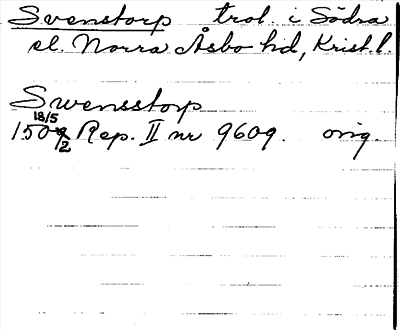 Svenstorp trol. i Södra
el. Norra Åsbo hd, Krist.l.
Swensstorp
1509 18/5 2 Rep. II nr 9609. orig.